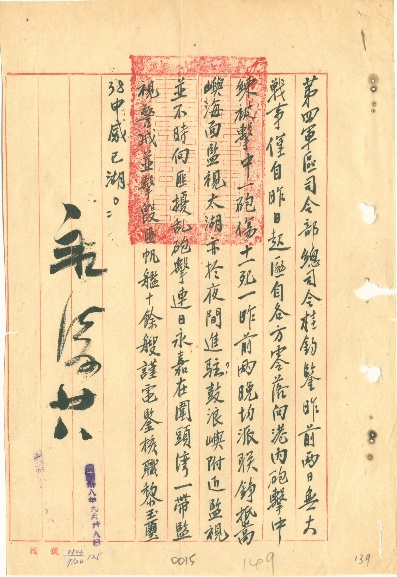 第四軍區司令部總司令桂鈞鑒昨前兩日無大
戰事僅自昨日起匪自各方零落向港內砲擊中
練被擊中一砲傷十一死一昨前兩晚均派聯錚抵高
嶼海面監視太湖亦於夜間進駐鼓浪嶼附近監視
並不時向匪擾乱砲擊連日永嘉在圍頭湾一帶監
視警戒並擊毀匪帆艦十餘艘謹電鑒核職黎玉璽
申威已湖
八年九月廿八日
號
0015
149
139